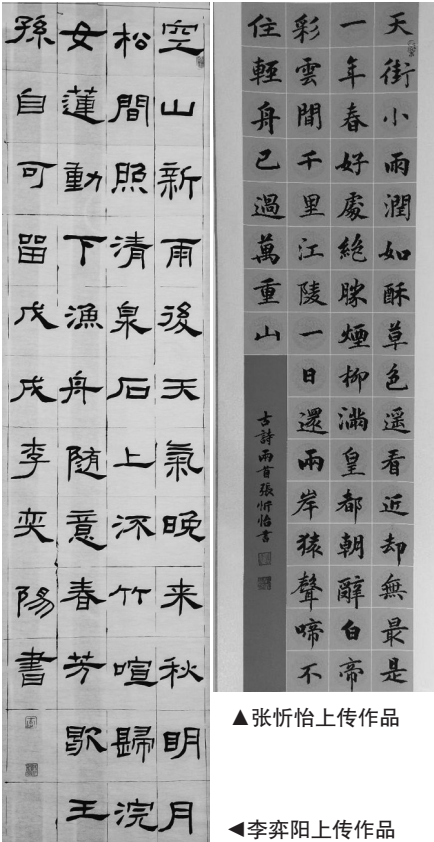 空山新雨後天氣晚来秋明月
松間照清泉石上流竹喧歸浣
女蓮動下漁舟随意春芳歇王
孫自可留戊戌李奕陽書
天街小雨潤如酥草色遥看近却無最是
一年春好處絶勝煙柳滿皇都朝辭白帝
彩雲間千里江陵一日還兩岸猿聲啼不
住輕舟已過萬重山
古詩兩首張忻怡書
▲张忻怡上传作品
◀李弈阳上传作品